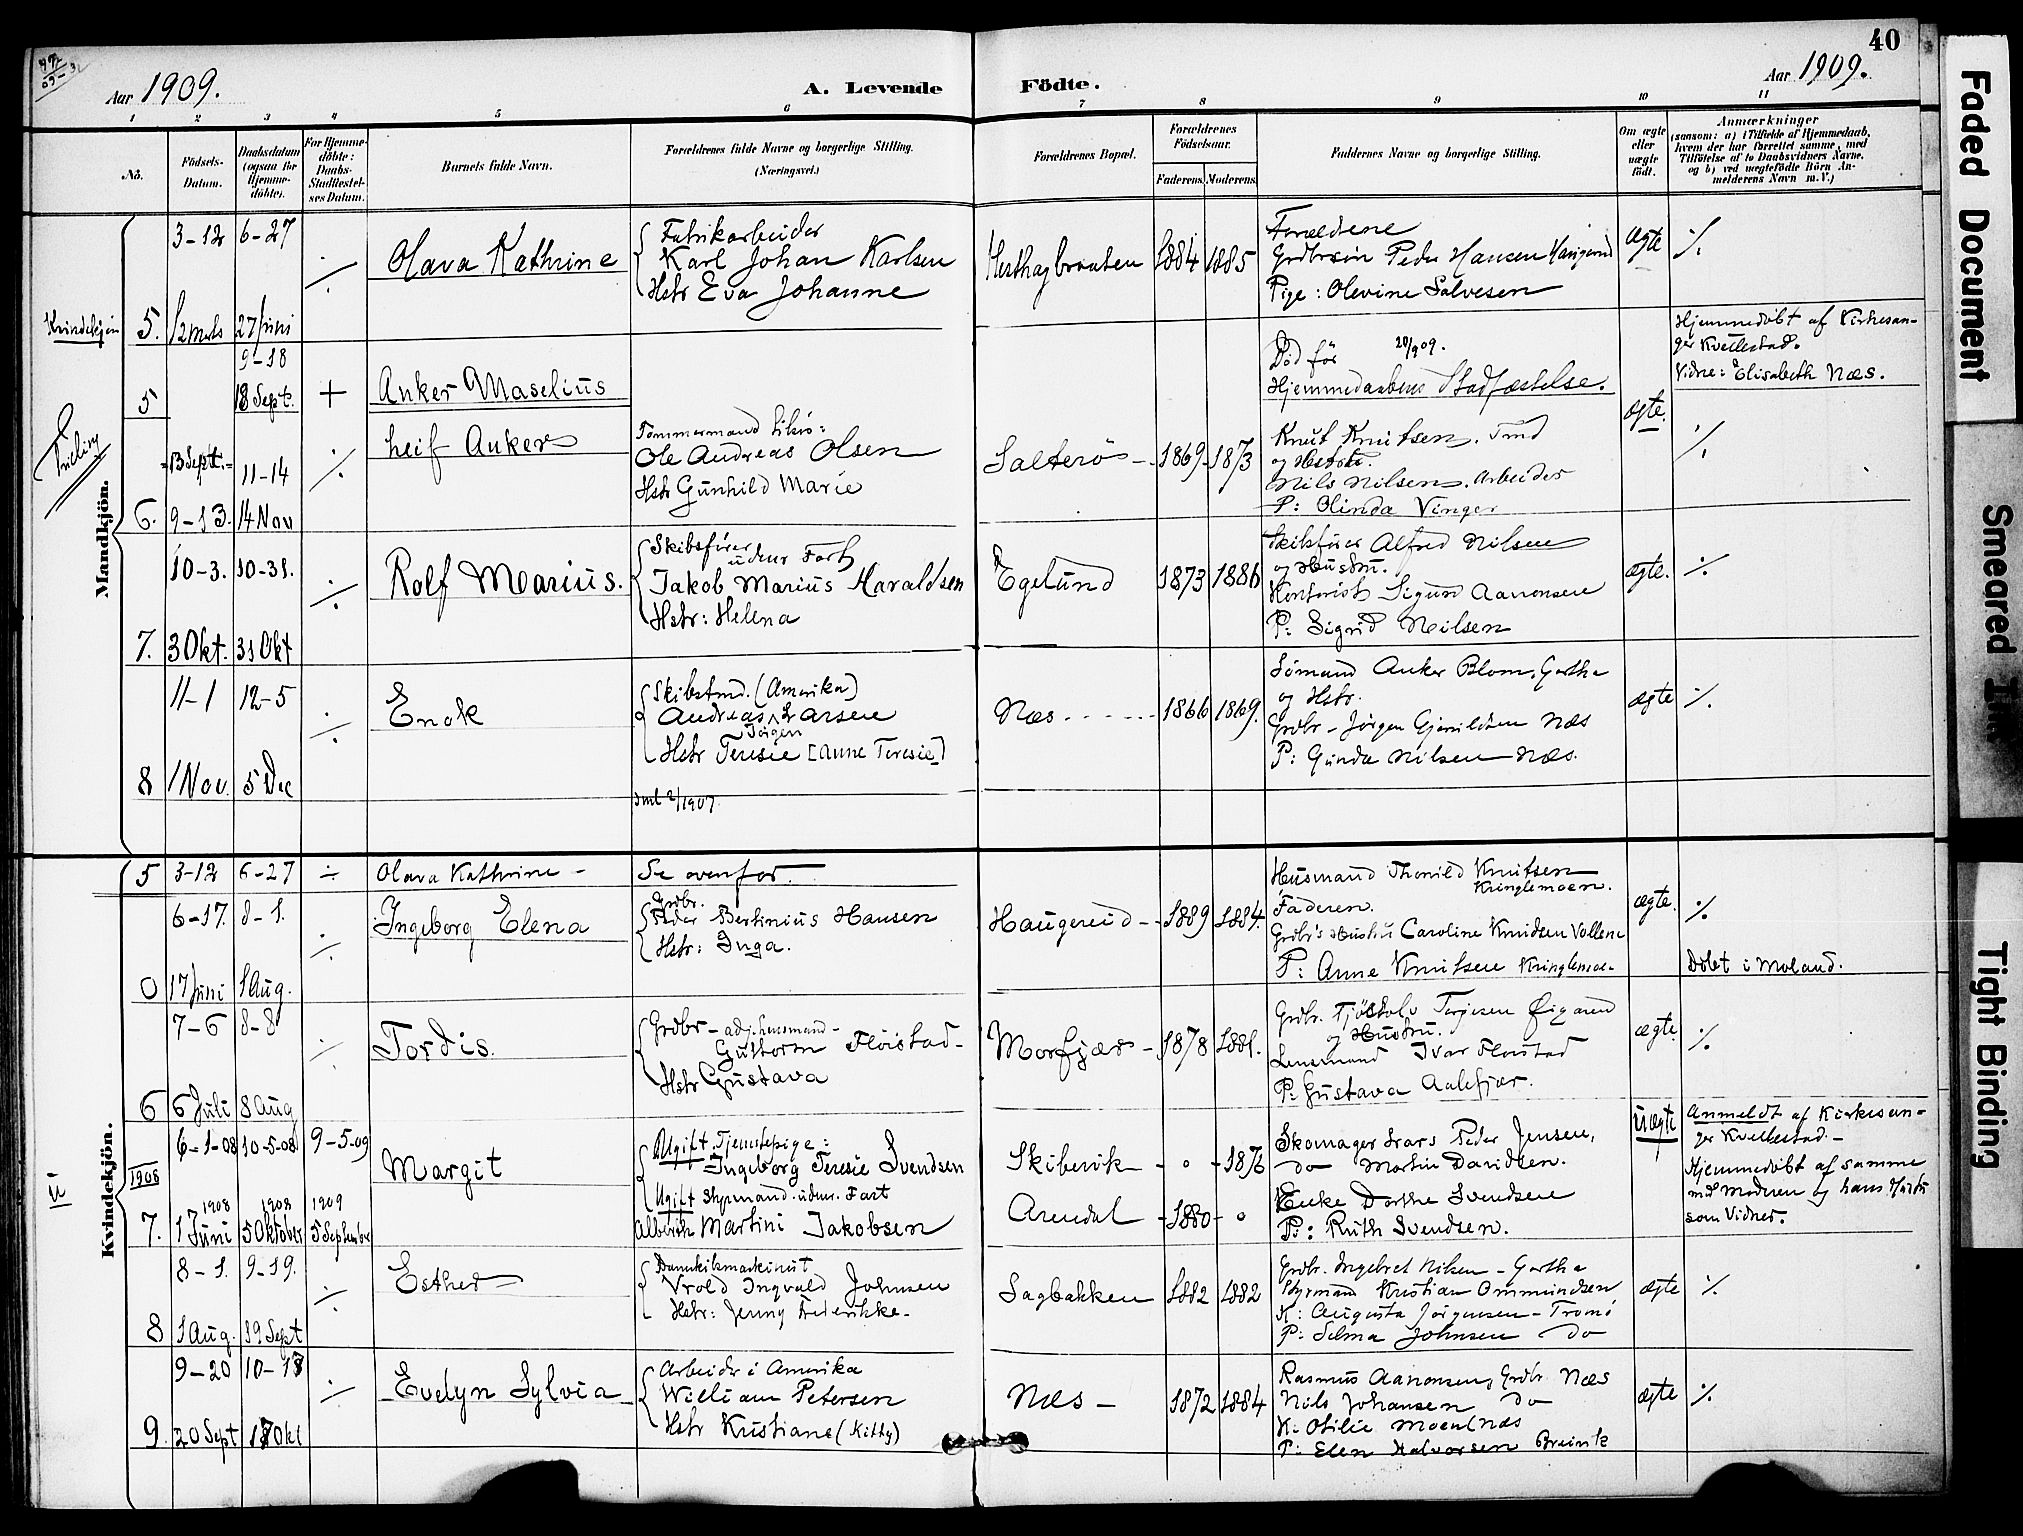 Aar 1909.
A. Levende Födte.
40
Aar 1909.
1 2 3 4 5 6 7 8 9 10 11
No.
Födsels-Datum.
Daabsdatum (ogsaa for Hjemmedöbte).
For Hjemmedöbte: Daabs-Stadfestelses Datum.
Barnets fulde Navn.
Forældrenes fulde Navne og borgerlige Stilling. (Næringsvei.)
Forældrenes Bopæl.
Forældrenes Födselsaar.
Faderens. Moderens.
Faddernes Navne og borgerlige Stilling.
Om ægte eller uægte födt.
Anmærkninger
(saasom: a) i Tilfælde af Hjemmedaab, hvem der har forrettet samme, med Tilföielse af to Daabsvidners Navne, og b) ved uægtefödte Börn Anmelderens Navn m. V.)
Mandkjön.
Kvindekjön
5. 3-12 6-27 ./. Olava Kathrine
12 marts 27 Juni
Fabrikarbeider
Karl Johan Karlsen
Hstr Eva Johanne
Hesthagbraaten 1884 1885
Forældrene
Grdbrsön Peder Hansen Haugerud
Pige: Olevine Salvesen
Ægte ./.
5 9-18
18 Sept. + Anker Maselius
Död för 20/9 09.
Hjemmedaabens Stadfæstelse.
Hjemmedöbt af Kirkesan-
ger Kvellestad.
Vidne: Elisabeth Næs.
Tvilling
6. 13 Sept. 11-14 ./. Leif Anker
9-13. 14 Nov
Tömmermand
Ole Andreas Olsen
Hstr Gunhild Marie
Salterö 1869 1873
Knut Knutsen.
og Hstr.
Nils Nilsen. Arbeider
P: Olinda Vinger
ægte. ./.
7. 10-3. 10-31. ./. Rolf Marius.
3 Okt. 31 Okt
Skibsförer udenr Fart
Jakob Marius Haraldsen
Hstr: Helena
Egelund 1873 1886
Skibsförer Alfred Nilsen
og Hustru.
Kontorist Sigurd Aanonsen
P: Sigrid Nilsen
ægte. ./.
8 11-1 12-5 ./. Enok
1 Nov. 5 Dec
Skibstmd. (Amerika)
Andreas Larsen
Jörgen
Hstr Teresie [Anne Teresie]
Næs 1866 1869.
Sömand Anker Blom, Gartha
og Hstr.
Grdbr - Jörgen Gjeruldsen Næs
P: Gunda Nilsen Næs.
ægte ./.
Kvindekjön.
5 3-12 6-27 ./. Olava Kathrine - Se ovenfor.
0 6-17. 8-1. ./. Ingeborg Elena
17 Juni 1 Aug.
Grdbr.
Peder Bertinius Hansen
Hstr: Inga.
Haugerud 1889 1884.
Husmand Thorvild Knutsen Kringlemoen.
Faderen.
Grdbr's Hustru Caroline Knudsen Vollene
P: Anne Knutsen Kringlemoe-
ægte. ./.
Döbt i Moland.
6 7-6 8-8 ./. Tordis.
6 Juli 8 Aug
Grdbr - adj. lensmand -
Guttorm Flöistad -
Hstr Gustava
Morfjær 1878 1881.
Grdbr. Tjöstolv Terjesen Öigaren
og Hustru.
Lensmand Ivar Flöistad
P: Gustava Aalefjær.
ægte. ./.
u
1908
7. 6-1-08 10-5-08 9-5-09 Margit
1908 1908 1909
1 Juni 5 Oktober 5 September
Ugift Tjenestepige:
Ingeborg Teresie Svendsen
Ugift Styrmand. udenr. Fart
Alberth Martini Jakobsen
Skibevik - o - 1876
Arendal - 1880 - o
Skomager Lars Peder Jensen,
Do Martin Davidsen.
Enke Dorthe Svendsen
P.: Ruth Svendsen.
Uægte
Anmeldt af Kirkesan-
ger Kvellestad. -
Hjemmedöbt af samme
med Moderen og hans Hustr
som Vidner.
8 8-1. 9-19. ./. Esther
1 Aug. 19 Sept
Dampskibsmaskinist
Vrold Ingvald Johnsen
Hstr: Jenny Frederikke.
Sagbakken 1882 1882
Grdbr. Ingebret Nilsen - Gartha
Styrmand Kristian Ommundsen
K: Augusta Jörgensen - Tromö
P: Selma Johnsen Do
ægte ./.
9. 9-20 10-17 ./. Evelyn Sylvia
20 Sept 17 Okt
Arbeider i Amerika
William Petersen
Hstr Kristiane (Kitty)
Næs - 1872 1884
Rasmus Aanonsen, Grdbr Næs
Nils Johansen Do
K: Otilie Moen Næs
P: Elen Halvorsen
ægte ./.
Faded Document
Smeared Ink
Tight Binding